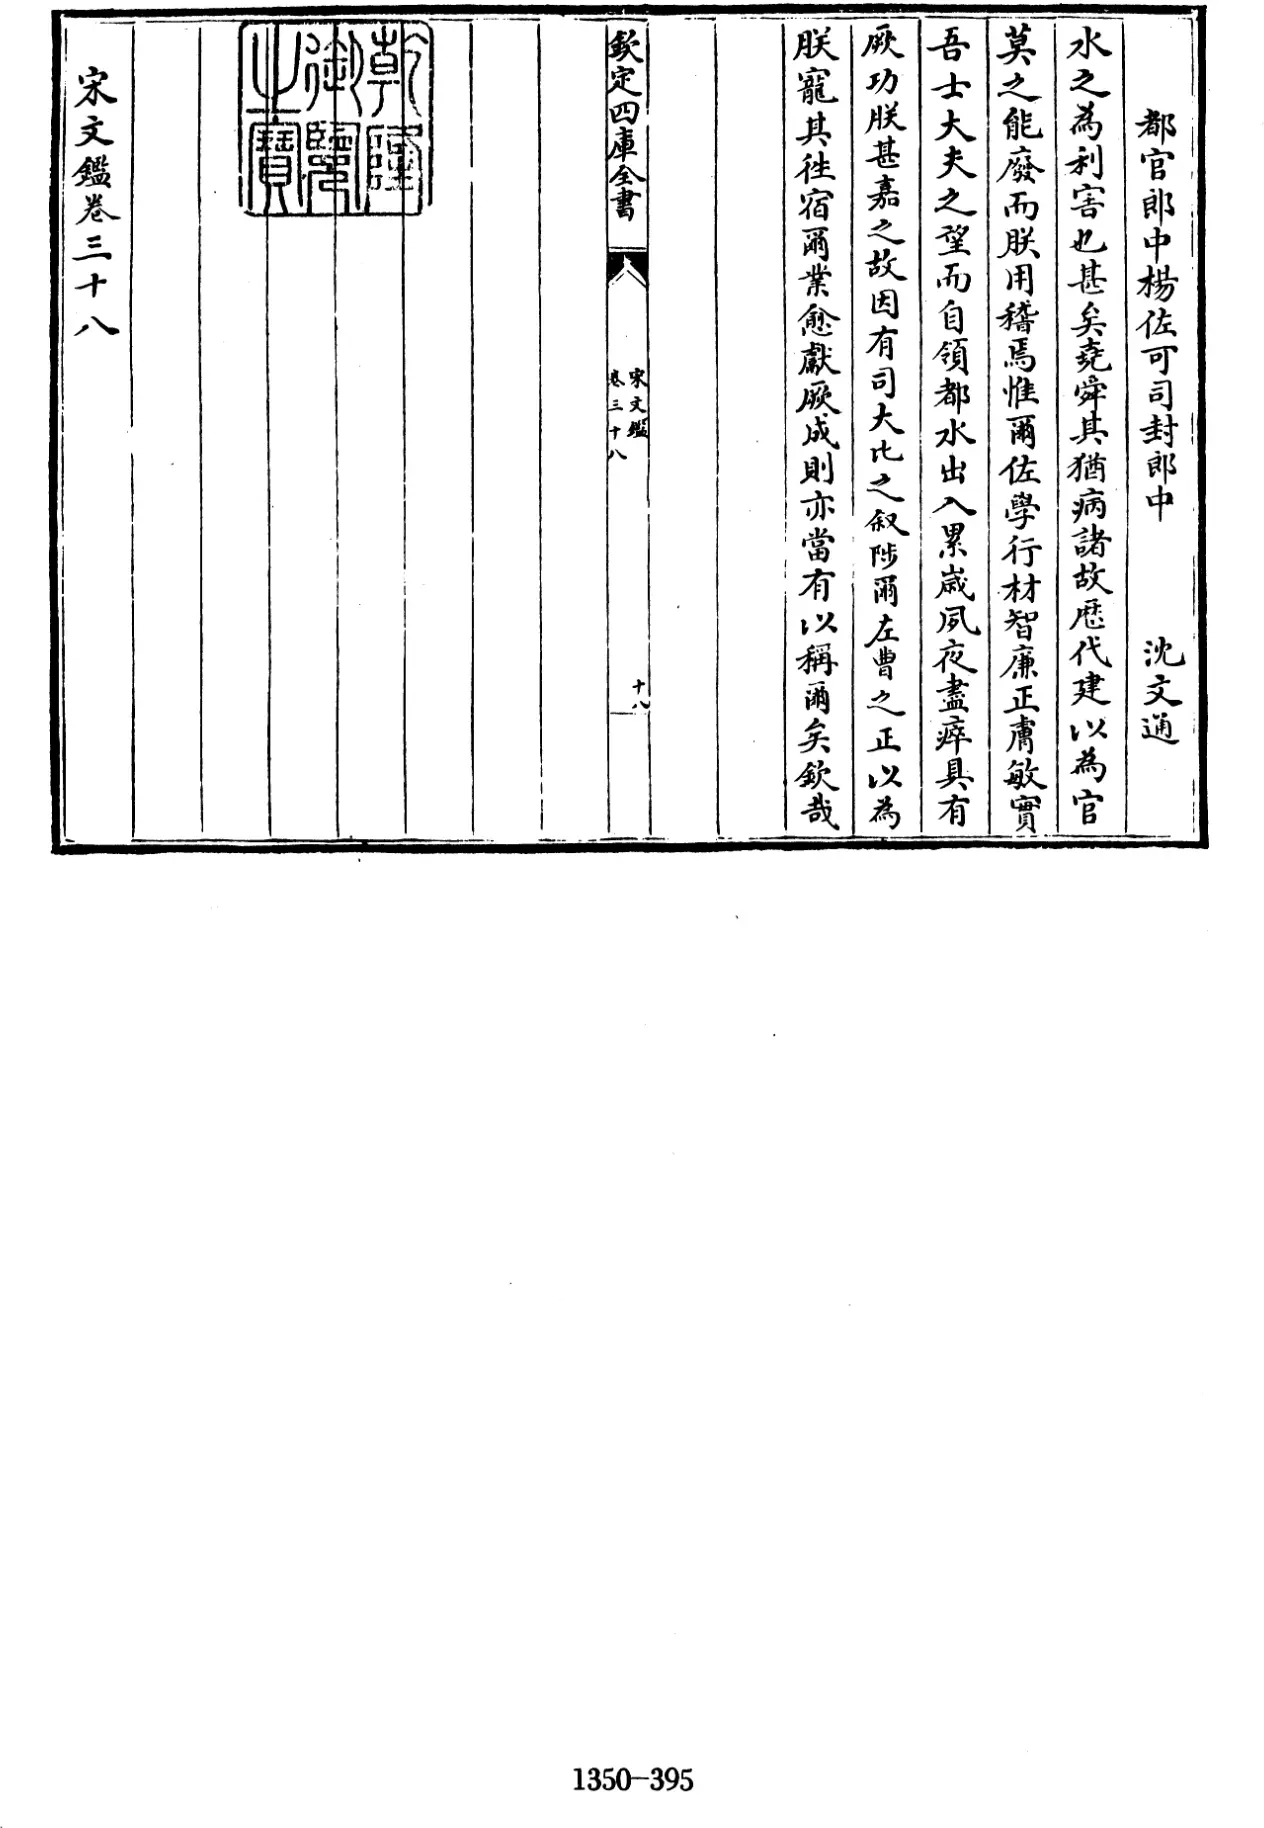 都官郎中楊佐可司封郎中 沈文通
水之為利害也甚矣堯舜其猶病諸故厯代建以為官
莫之能廢而朕用稽焉惟爾佐學行材智廉正膚敏實
吾士大夫之望而自領都水出入累歲夙夜盡瘁具有
厥功朕甚嘉之故因有司大比之叙陟爾左曹之正以為
朕寵其徃宿爾業愈獻厥成則亦當有以稱爾矣欽哉
欽定四庫全書
宋文鑑
卷三十八
十八
乾隆御覽之寶
宋文鑑卷三十八
1350-395